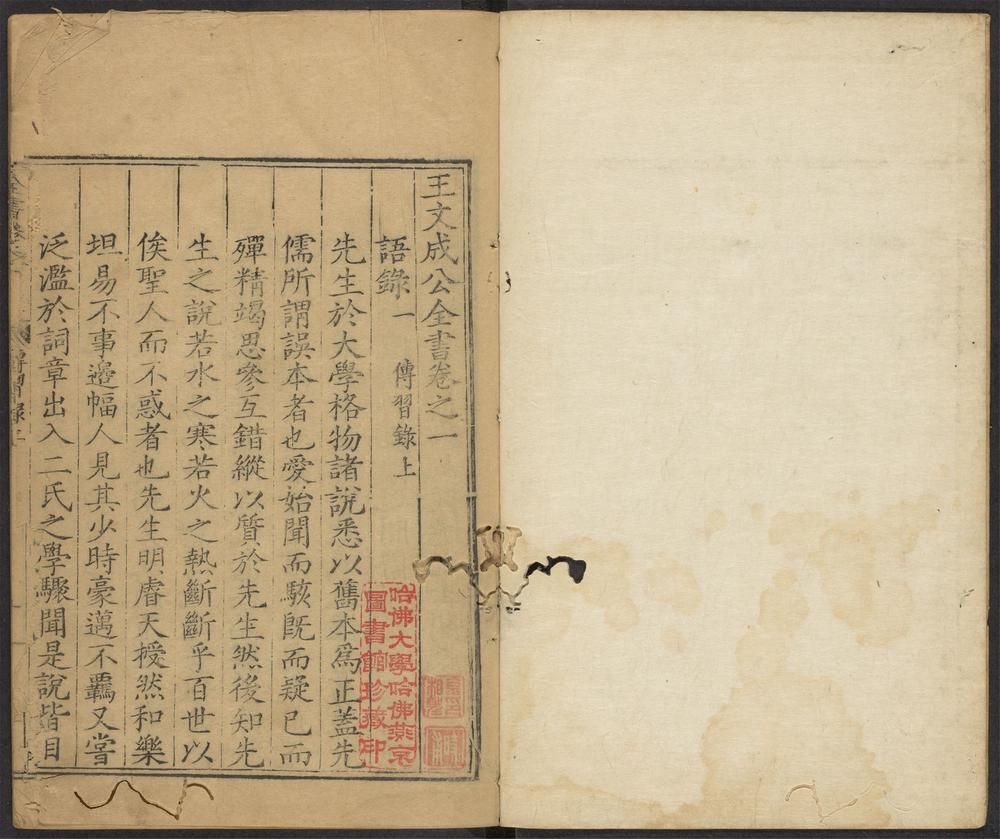 王文成公全書卷之一
語錄一 傳習錄上
先生於大學格物諸說悉以舊本爲正蓋先
儒所謂誤本者也愛始聞而駭旣而疑已而
殫精竭思參互錯縱以質於先生然後知先
生之說若水之寒若火之熱斷斷乎百世以
俟聖人而不惑者也先生明睿天授然和樂
坦易不事邊幅人見其少時豪邁不羈又嘗
泛濫於詞章出入二氏之學驟聞是說皆目
傳習錄上
哈佛大學哈佛燕京
圖書館珍藏印